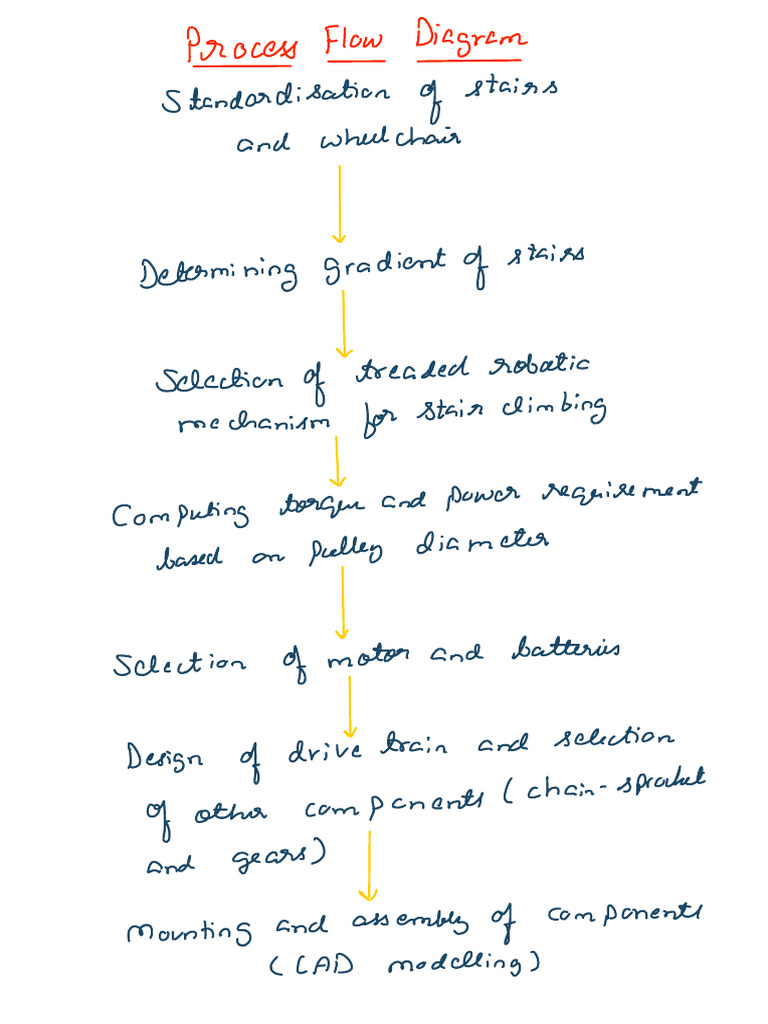 Process Flow Diagram
Standardisation of stairs
and wheelchair
Determining gradient of stairs
Selection of treaded robotic
mechanism for stair climbing
Computing torque and power requirement
based on pulley diameter
Selection of motor and batteries
Design of drive train and selection
of other components (chain-sprocket
and gears)
Mounting and assembly of components
(CAD modelling)